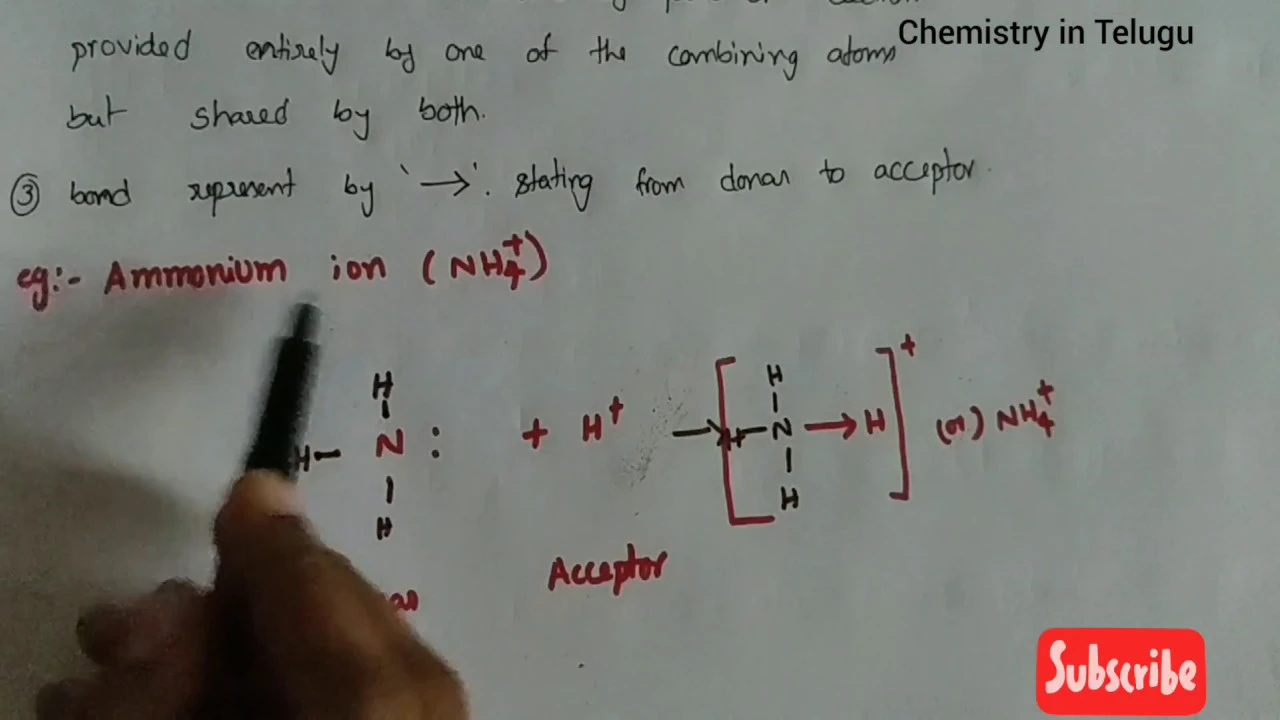 Chemistry in Telugu
provided entirely by one of the combining atoms
but shared by both.
③ bond represent by '→'. stating from donar to acceptor.
eg:- Ammonium ion (NH₄⁺)
H
H – N : + H⁺ → [ H – N → H ]⁺ (or) NH₄⁺
H
H
H
Acceptor
Subscribe